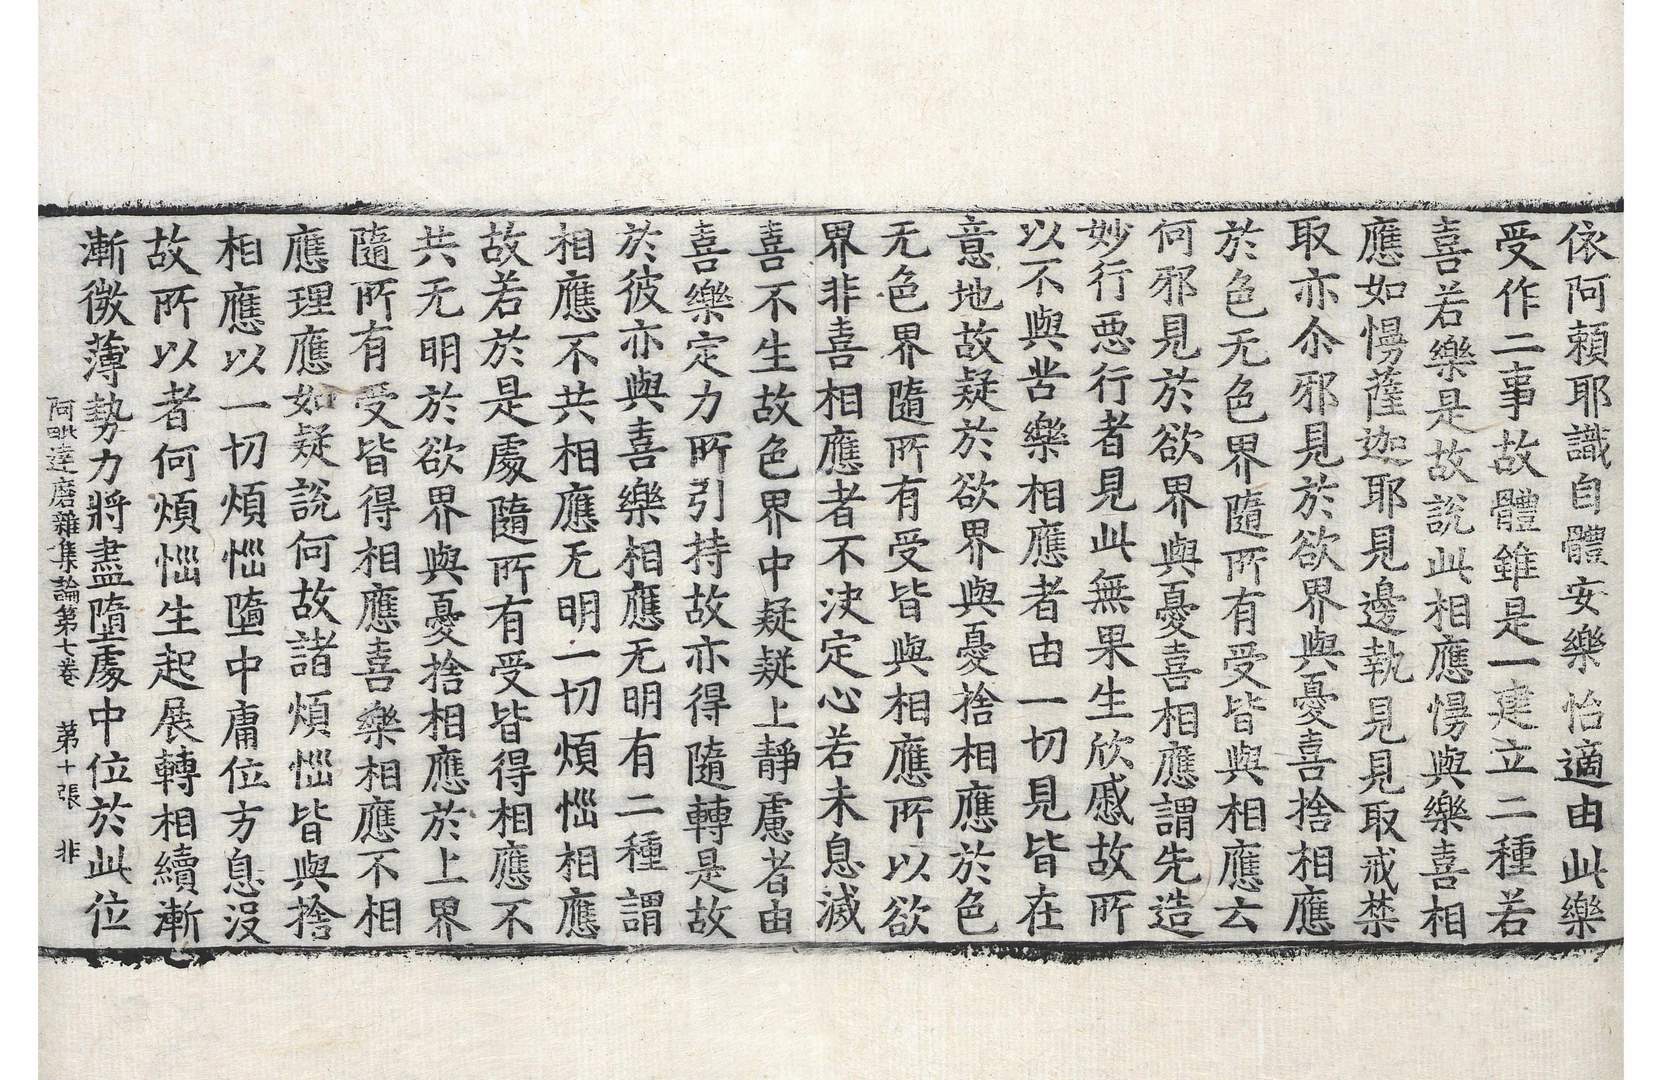 依阿頼耶識自體安樂怡適由此樂
受作二事故體雖是一建立二種若
喜若樂是故說此相應慢與樂喜相
應如慢薩迦耶見邊執見見取戒禁
取亦尒邪見於欲界與憂喜捨相應
於色无色界隨所有受皆與相應云
何邪見於欲界與憂喜相應謂先造
妙行惡行者見此無果生欣慼故所
以不與苦樂相應者由一切見皆在
意地故疑於欲界與憂捨相應於色
无色界隨所有受皆與相應所以欲
界非喜相應者不决定心若未息滅
喜不生故色界中疑疑上靜慮者由
喜樂定力所引持故亦得隨轉是故
於彼亦與喜樂相應无明有二種謂
相應不共相應无明一切煩惱相應
故若於是處隨所有受皆得相應不
共无明於欲界與憂捨相應於上界
隨所有受皆得相應喜樂相應不相
應理應如疑說何故諸煩惱皆與捨
相應以一切煩惱墮中庸位方息没
故所以者何煩惱生起展轉相續漸
漸微薄勢力將盡墮處中位於此位
阿毗達磨雜集論第七卷　第十張　非